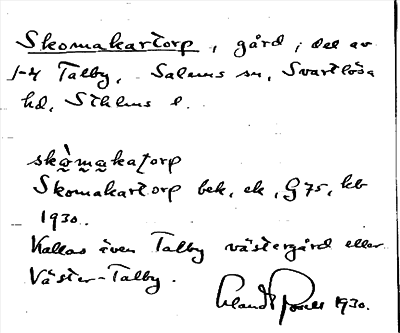 Skomakartorp, gård, del av
1-4 Talby, Salems sn, Svartlösa
hd, Sthlms l.
skò̱ma̱katorp
Skomakartorp bek, ek, G 75, kb
1930.
Kallas även Talby västergård eller
Väster-Talby.
1930.